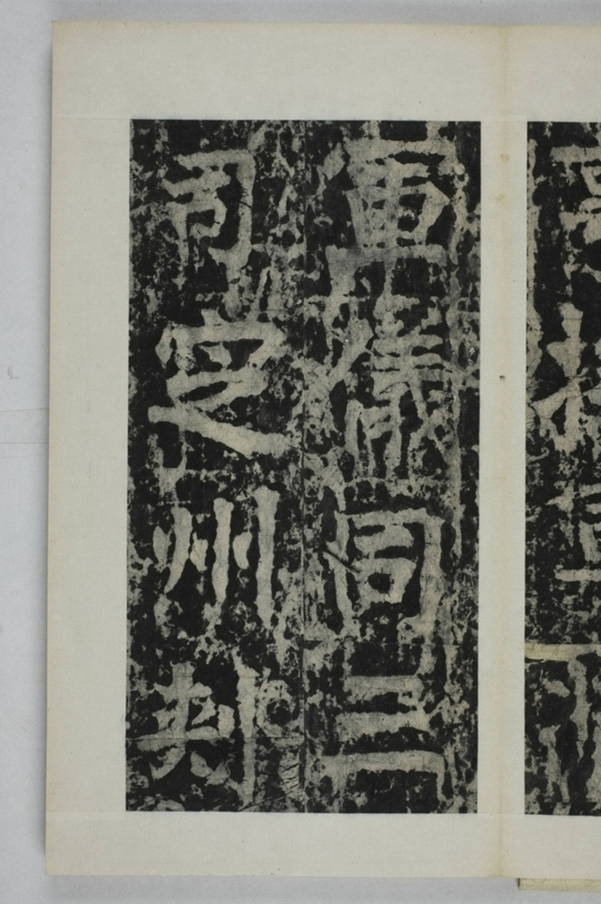 軍儀同三
司定州刺